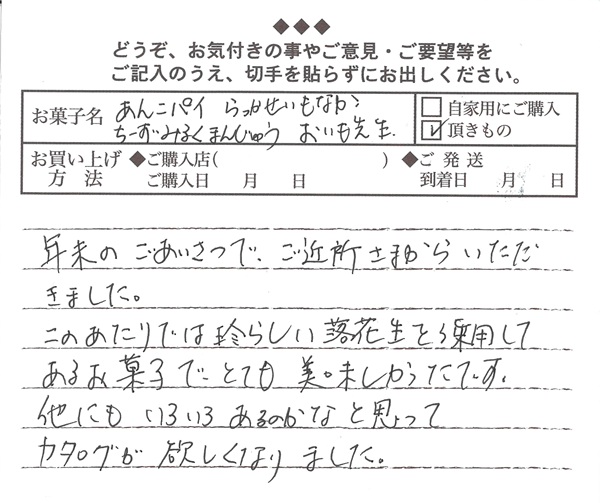 ◆◆◆
どうぞ、お気付きの事やご意見・ご要望等を
ご記入のうえ、切手を貼らずにお出しください。
お菓子名 あんこパイ らっかせいもなか □ 自家用にご購入
ちーずみるくまんじゅう おいも先生. ☑ 頂きもの
お買い上げ ◆ご購入店( ) ◆ご発送
方法 ご購入日 月 日 到着日 月 日
年末のごあいさつで、ご近所さまからいただ
きました。
このあたりでは珍らしい落花生を使用して
あるお菓子でとても美味しかったです。
他にもいろいろあるのかなと思って
カタログが欲しくなりました。